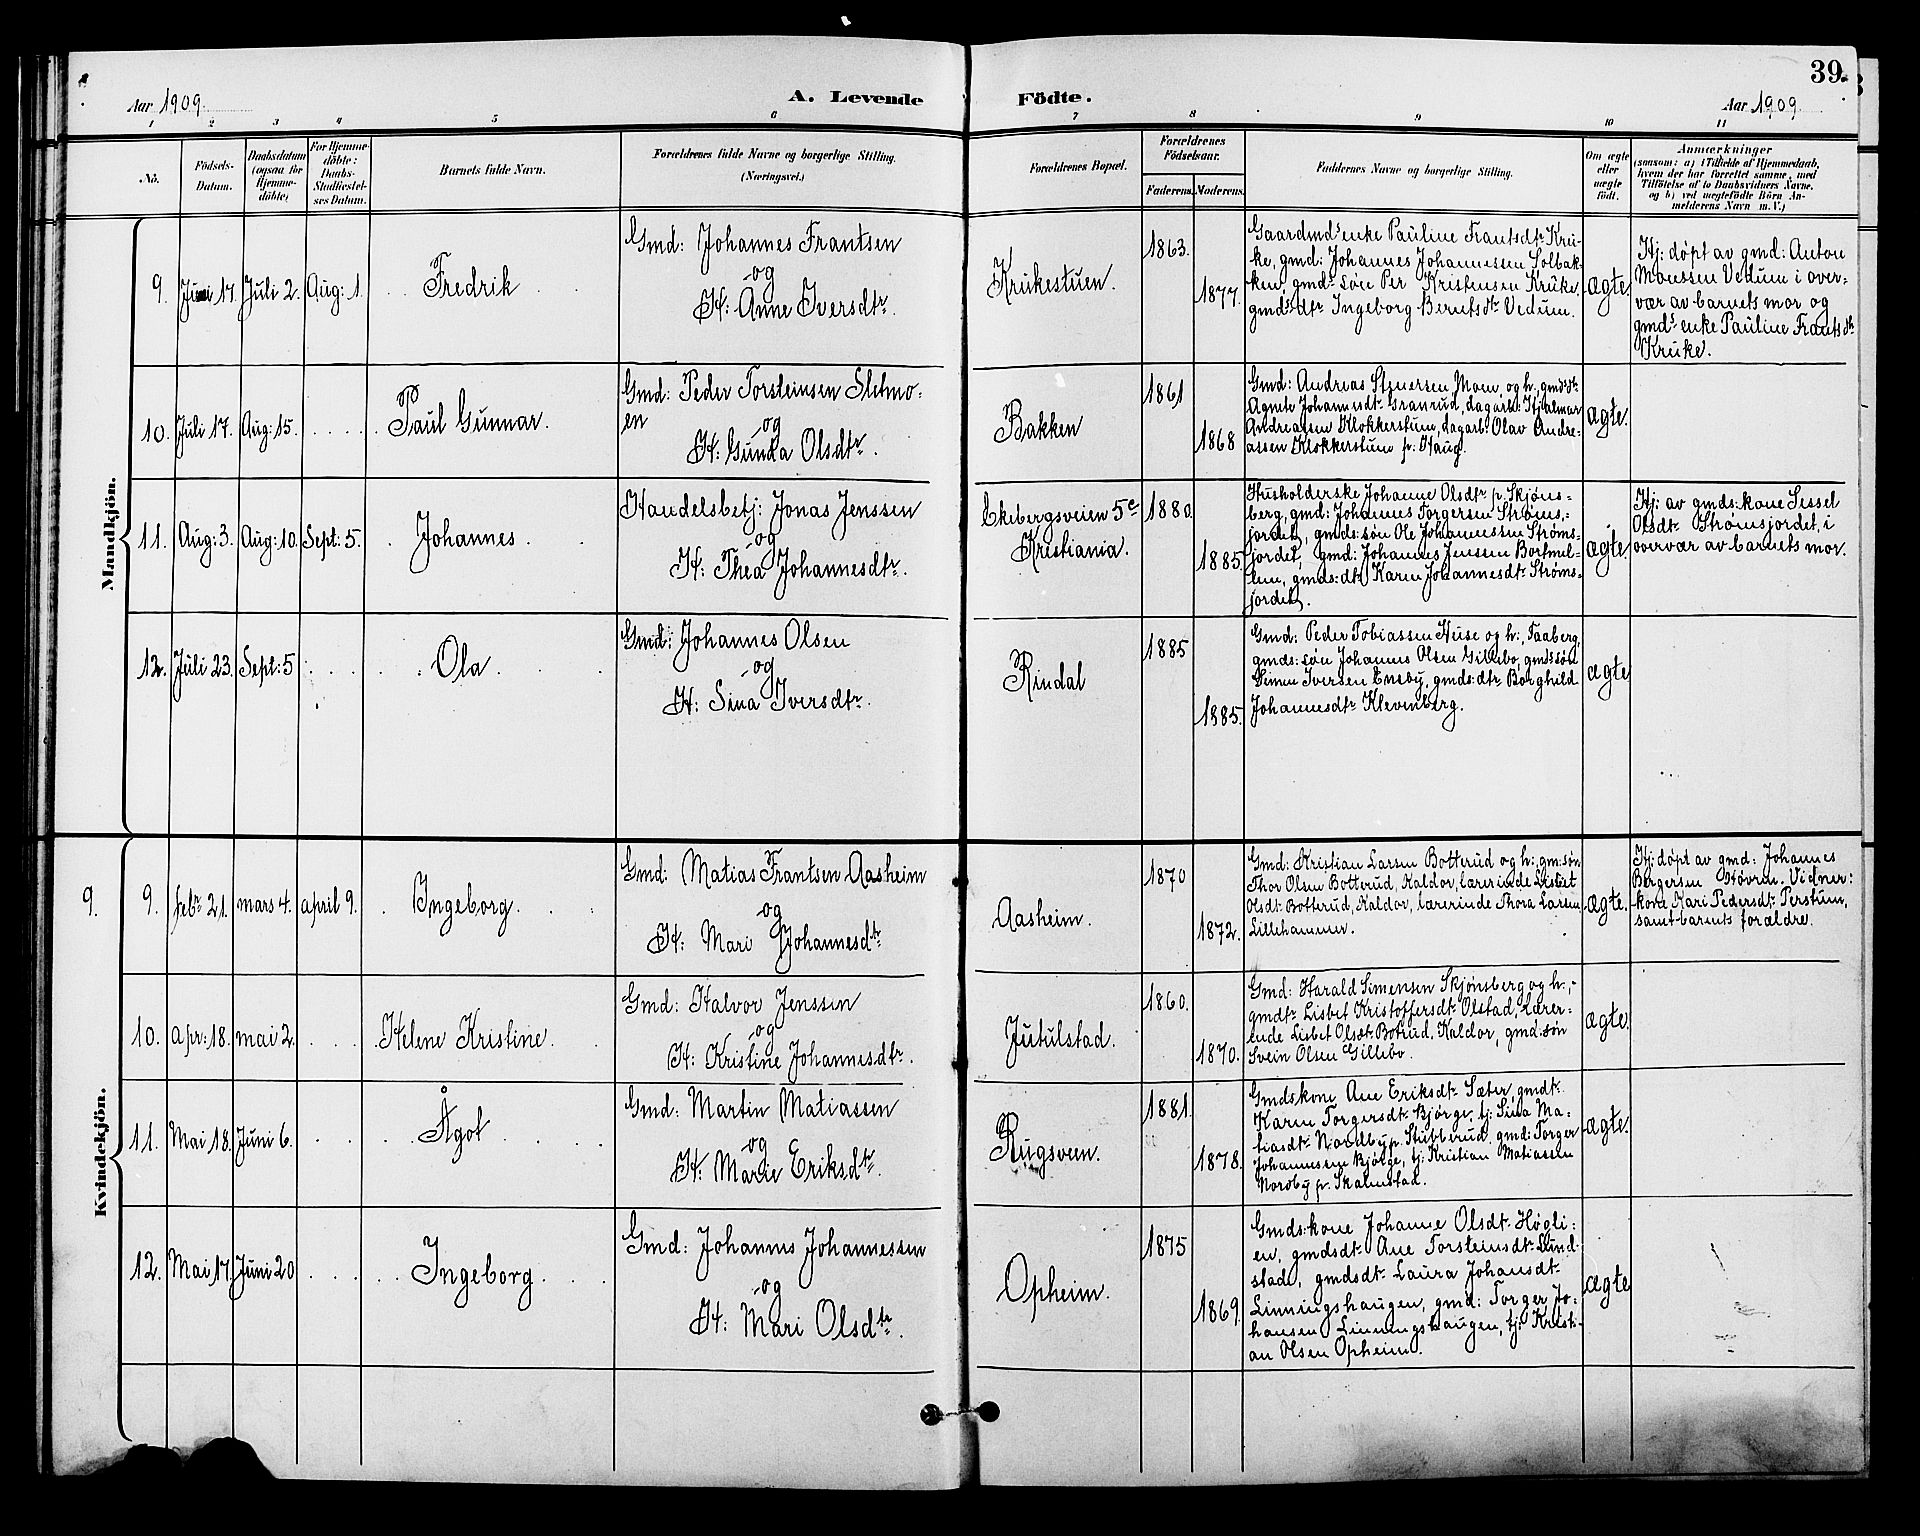 39.
Aar 1909.
A. Levende Födte.
Aar 1909
1 2 3 4 5 6 7 8 9 10 11
No.
Födsels-
Datum.
Daabsdatum
(ogsaa for
Hjemme-
döbte)
For Hjemme-
döbte:
Daabs-
Stadfæstel-
ses Datum.
Barnets fulde Navn.
Forældrenes fulde Navne og borgerlige Stilling.
(Næringsvei.)
Forældrenes Bopæl.
Forældrenes
Födselsaar.
Faderens.
Moderens.
Faddernes Navne og borgerlige Stilling.
Om ægte
eller
uægte
födt.
Anmærkninger
(saasom: a) i Tilfælde af Hjemmedaab,
hvem der har forrettet samme, med
Tilföielse af to Daabsvidners Navne,
og b) ved uægtefödte Börn An-
melderens Navn m. V.)
Mandkjön.
9. Juni 17. Juli 2. Aug: 1. Fredrik
Gmd: Johannes Frantsen
og
H: Anne Iversdtr.
Krukestuen.
1863.
1877.
Gaardmds enke Pauline Frantsdtr Kru-
ke, gmd: Johannes Johannessen Solbak-
ken, gmds søn Per Kristensen Kruke,
gmds dtr Ingeborg Berntsdtr Vedum.
ægte
Hj: døpt av gmd: Anton
Monssen Vedum i over-
vær av barnets mor og
gmds enke Pauline Frantsdtr
Kruke.
10. Juli 17. Aug: 15. Paul Gunnar.
Gmd: Peder Torsteinsen Sletmo-
en
og
H: Gunda Olsdtr.
Bakken
1861
1868
Gmd: Andreas Moen og h., gmds dtr
Agnete Johannesdtr Granrud, dagarb: Hjalmar
Andreassen Klokkerstuen, dagarb. Olav Andre-
assen Klokkerstuen p. Haug.
ægte.
11. Aug: 3. Aug: 10. Sept: 5. Johannes.
Handelsbetj: Jonas Jenssen
og
H: Thea Johannesdtr.
Ekebergsveien 5c
Kristiania.
1880.
1885.
Husholderske Johanne Olsdtr p. Skjøns-
berg, gmd: Johannes Torgersen Strøms-
jordet, gmds: søn Ole Johannessen Strøms-
jordet, gmd: Johannes Jenssen
gmds: dtr Karen Johannesdtr Strøms-
jordet.
ægte.
Hj: av gmds: kone Sessel
Olsdtr Strømsjordet, i
overvær av barnets mor.
12. Juli 23. Sept: 5 Ola
Gmd: Johannes Olsen
og
H: Sina Iversdtr.
Rindal
1885
1885.
Gmd: Peder Tobiassen Huse og h:, Faaberg,
gmds: søn Johannes Olsen Gillebo, gmds søn
Simen Iversen Ensby, gmds: dtr Borghild
Johannesdtr Klevenberg.
ægte
Kvindekjön.
9. 9. febr 21. mars 4. april 9. Ingeborg.
Gmd: Matias Frantsen Aasheim
og
H: Mari Johannesdtr
Aasheim.
1870
1872.
Gmd: Kristian Larsen Botterud og h:, gm: søn
Thor Olsen Botterud, Kaldor, lærerinde Lisbet
Olsdtr Botterud, Kaldor, lærerinde Thora Larsen,
Lillehammer.
ægte.
Hj: døpt av gmd: Johannes
Bergersen Høvren. Vidner:
kone Mari Pedersdtr Perstuen,
samt barnets forældre.
10. Apr: 18. mai 2. Helene Kristine.
Gmd: Halvor Jenssen
og
H: Kristine Johannesdtr.
Jutulstad.
1860.
1870.
Gmd: Harald Simensen Skjønsberg og h.,
gmdtr Lisbet Kristoffersdtr Olstad, Lærer-
inde Lisbet Olsdtr Botrud, Kaldor, gmd: søn
Svein Olsen Gillebo.
ægte.
11. Mai 18. Juni 6. Ågot
Gmd: Martin Matiassen
og
H: Marie Eriksdtr.
Rugsveen.
1881.
1878.
Gmdskone Ane Eriksdtr Sæter, gmdtr
Karen Torgersdtr Bjørge, tj: Sina Ma-
tiasdtr Nordby p. Stubberud, gmd: Torger
Johannessen Bjørge, tj: Kristian Matiassen
Nordby p. Skalmstad.
ægte.
12. Mai 17. Juni 20 Ingeborg.
Gmd: Johannes Johannessen
og
H: Mari Olsdtr.
Opheim.
1875
1869.
Gmds: kone Johanne Olsdtr Høgli-
en, gmdsdtr Ane Torsteinsdtr Lund-
stade, gmdsdtr Laura Johansdtr
Linningshaugen, gmd: Torger Jo-
hansen Linningshaugen, tj: Kristi-
an Olsen Opheim.
ægte